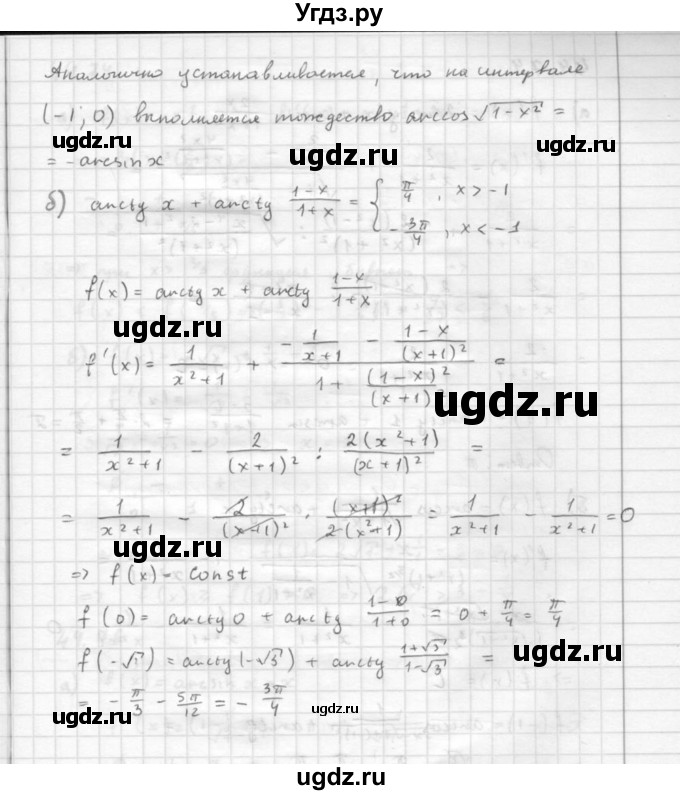 Угдз.ру
Аналогично устанавливается, что на интервале
(-1; 0) выполняется тождество arccos √(1-x²) =
= -arcsin x
ugdz.ru ugdz.ru
б) arctg x + arctg (1-x)/(1+x) = { π/4, x > -1
-3π/4, x < -1
ugdz.ru
f(x) = arctg x + arctg (1-x)/(1+x)
ugdz.ru
f'(x) = 1/(x²+1) + (-1/(x+1) - (1-x)/(x+1)²)/(1 + (1-x)²/(x+1)²) =
ugdz.ru
= 1/(x²+1) - 2/(x+1)² : 2(x²+1)/(x+1)² =
ugdz.ru
= 1/(x²+1) - 2/(x+1)² · (x+1)²/2(x²+1) = 1/(x²+1) - 1/(x²+1) = 0
ugdz.ru
⇒ f(x) - const
f(0) = arctg 0 + arctg (1-0)/(1+0) = 0 + π/4 = π/4
ugdz.ru
f(-√3) = arctg(-√3) + arctg (1+√3)/(1-√3) =
= -π/3 - 5π/12 = -3π/4
ugdz.ru
ugdz.ru
ugdz.ru